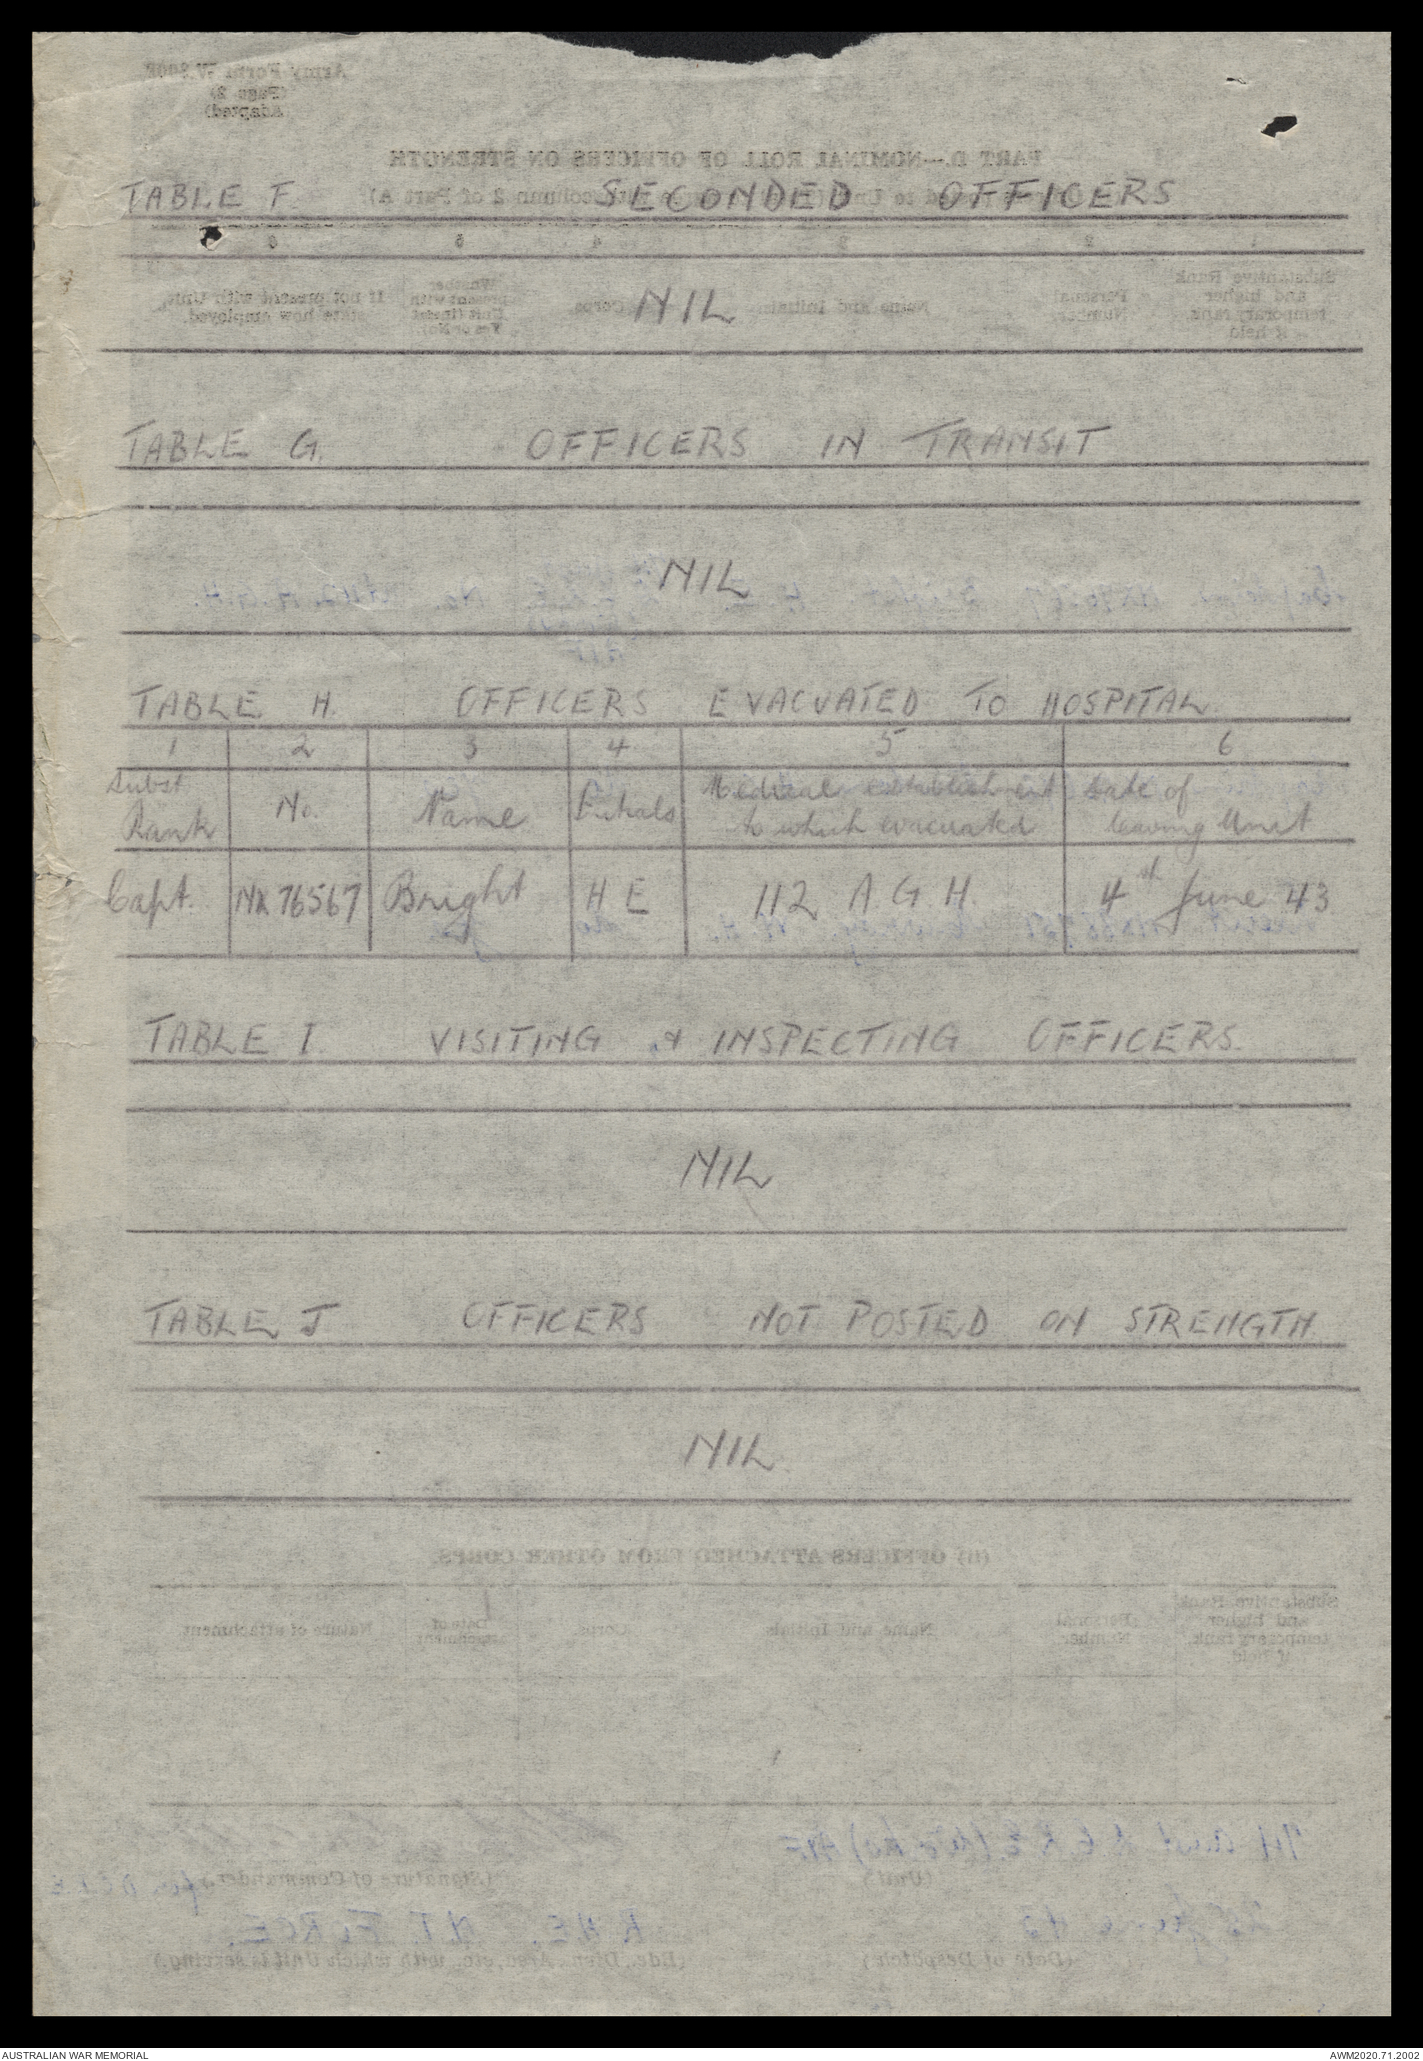 TABLE F. SECONDED OFFICERS
NIL
TABLE G. OFFICERS IN TRANSIT
NIL
TABLE H. OFFICERS EVACUATED TO HOSPITAL
1 2 3 4 5 6
Subst Rank No. Name Initials Medical establishment to which evacuated Date of leaving Unit
Capt. NX 76567 Bright H E 112 A.G.H. 4th June 43
TABLE I. VISITING & INSPECTING OFFICERS.
NIL
TABLE J OFFICERS NOT POSTED ON STRENGTH
NIL
AUSTRALIAN WAR MEMORIAL
AWM2020.71.2002